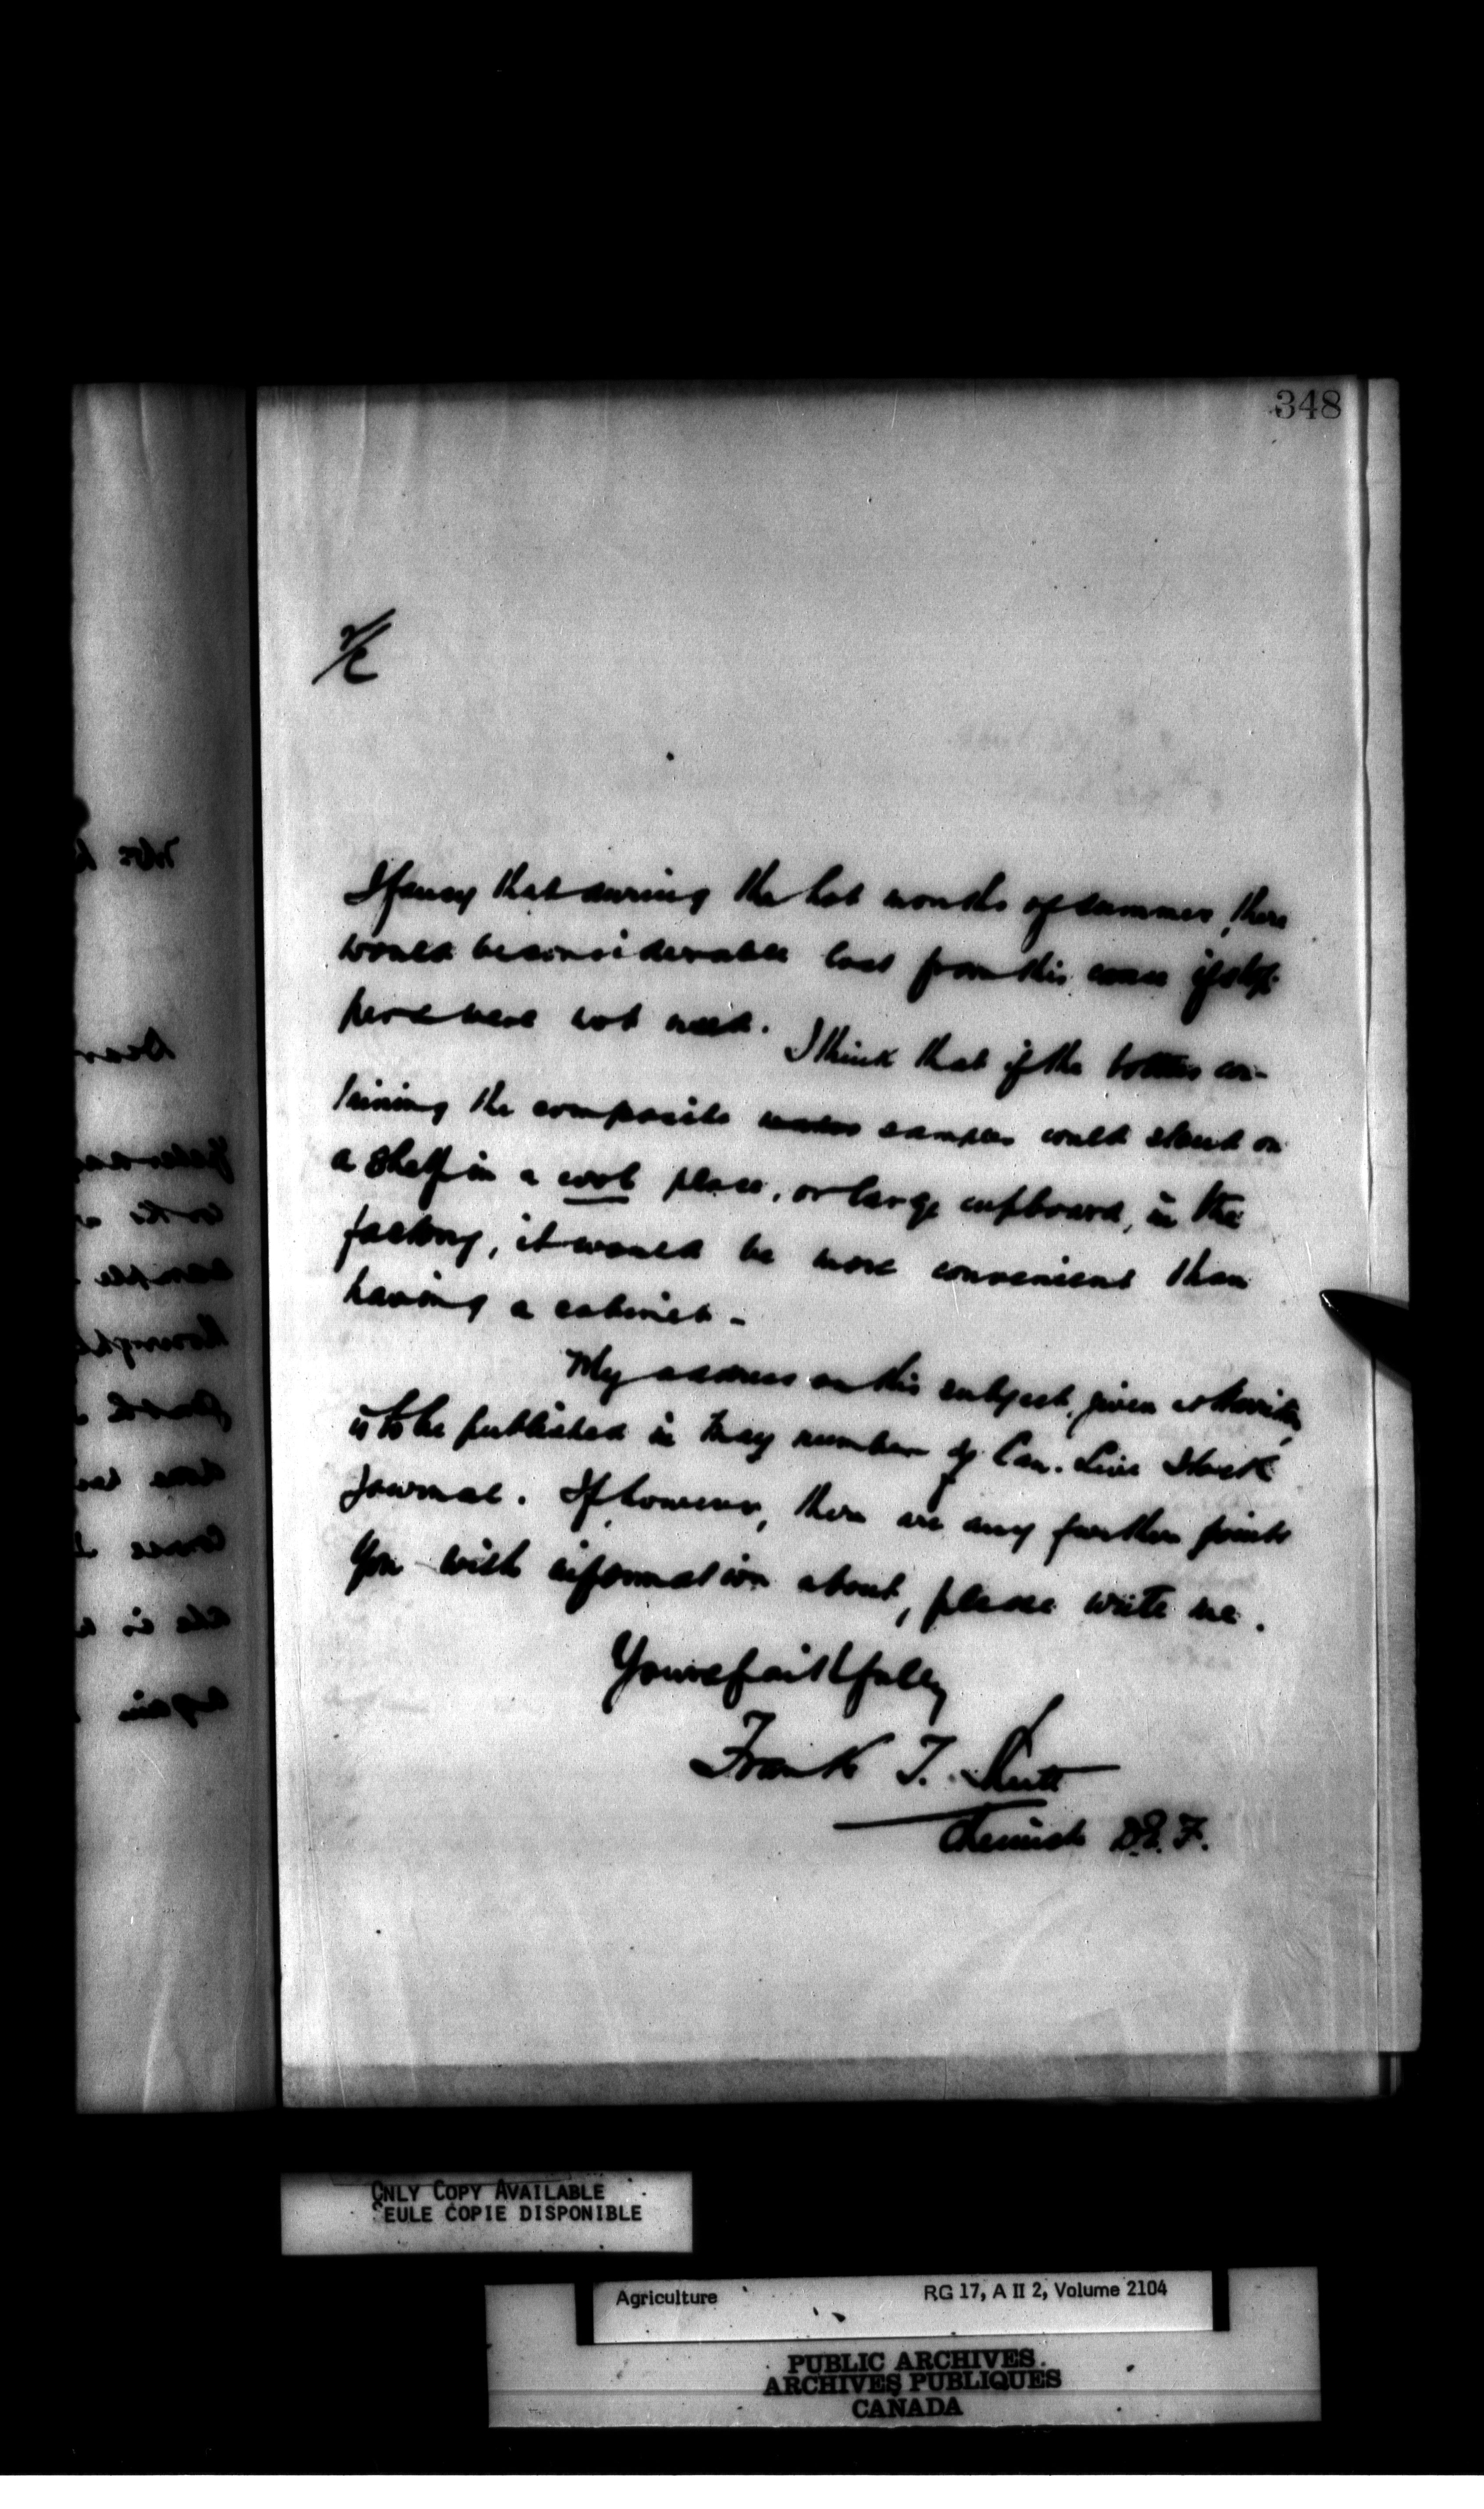 348
2/
I fancy that during the hot months of summer, there
would be considerable loss from this cause if stop-
pers were not used. I think that if the bottles con-
taining the composite samples could stand on
a shelf in a cool place, or large cupboard, in the
factory, it would be more convenient than
having a cabinet -
My address on this subject, given at
is to be published in May number of Can. Live Stock
Journal. If however, there are any further points
you wish information about, please write me.
Yours faithfully
Frank T. Shutt
Chemist D.E.F.
ONLY COPY AVAILABLE
SEULE COPIE DISPONIBLE
Agriculture RG 17, A II 2, Volume 2104
PUBLIC ARCHIVES
ARCHIVES PUBLIQUES
CANADA